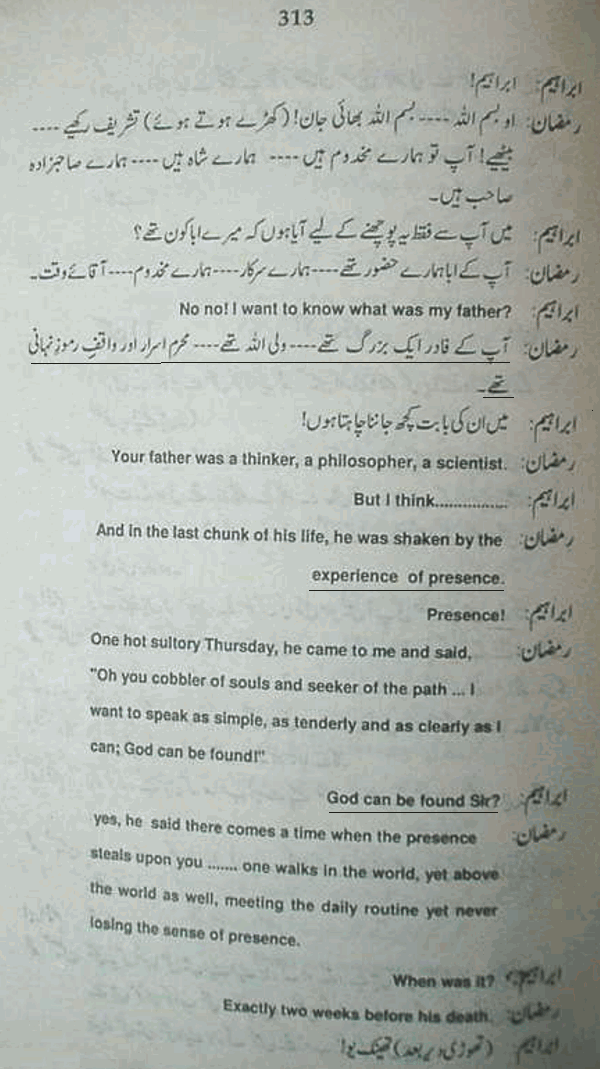 313
ابراہیم: ابراہیم!
رمضان: او بسم اللہ ---- بسم اللہ بھائی جان! (کھڑے ہوتے ہوئے) تشریف رکھیے ----
بیٹھیے! آپ تو ہمارے مخدوم ہیں ---- ہمارے شاہ ہیں ---- ہمارے صاحبزادہ
صاحب ہیں۔
ابراہیم: میں آپ سے فقط یہ پوچھنے کے لیے آیا ہوں کہ میرے ابا کون تھے؟
رمضان: آپ کے ابا ہمارے حضور تھے ---- ہمارے سرکار ---- ہمارے مخدوم ---- آقائے وقت۔
ابراہیم: No no! I want to know what was my father?
رمضان: آپ کے فادر ایک بزرگ تھے ---- ولی اللہ تھے ---- محرم اسرار اور واقفِ رموزِ نہانی
تھے۔
ابراہیم: میں ان کی بابت کچھ جاننا چاہتا ہوں!
رمضان: Your father was a thinker, a philosopher, a scientist.
ابراہیم: But I think................
رمضان: And in the last chunk of his life, he was shaken by the
experience of presence.
ابراہیم: Presence!
رمضان: One hot sultory Thursday, he came to me and said,
"Oh you cobbler of souls and seeker of the path ... I
want to speak as simple, as tenderly and as clearly as I
can; God can be found!"
ابراہیم: God can be found Sir?
رمضان: yes, he said there comes a time when the presence
steals upon you ....... one walks in the world, yet above
the world as well, meeting the daily routine yet never
losing the sense of presence.
ابراہیم: When was it?
رمضان: Exactly two weeks before his death.
ابراہیم: (تھوڑی دیر بعد) تھینک یو!